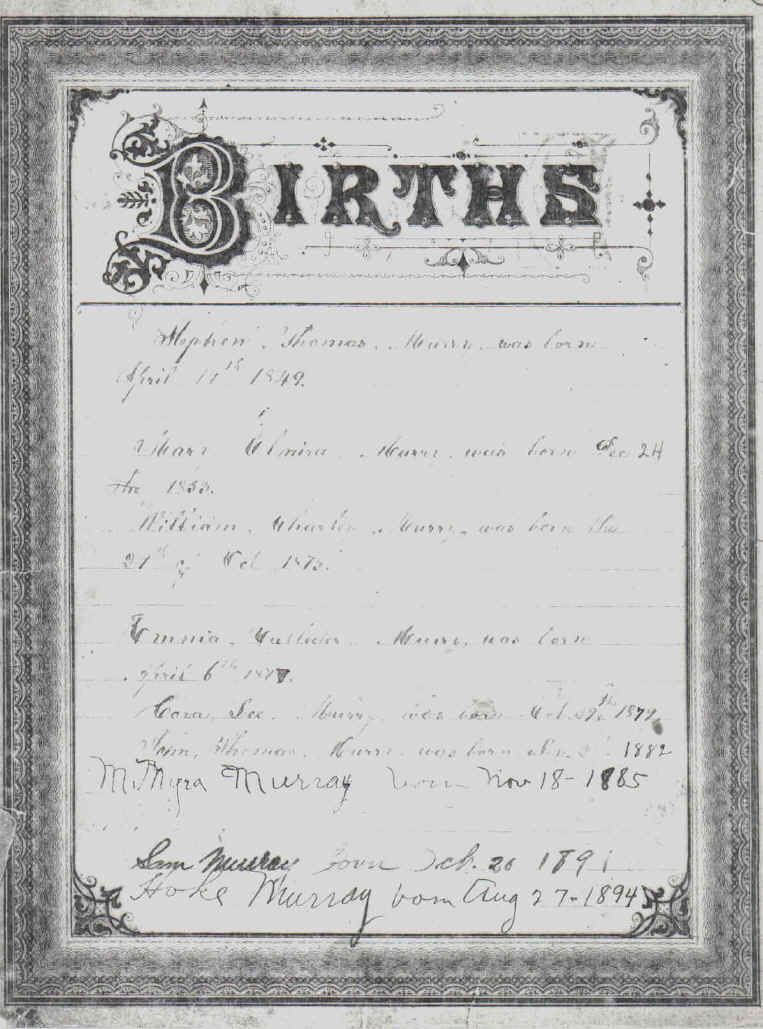 BIRTHS
Stephen Thomas Murry was born
April 1849.
Mary Elmira Murry was born Dec 24
1853.
William Charles Murry was born the
Oct
Murry was born
April 6th 1877.
Cora Lee Murry was born Oct 1879
Thomas Murry was born 1882
M. Myra Murray born Nov 18 - 1885
Sam Murray born 20 1891
Hoke Murray born Aug 27 - 1894